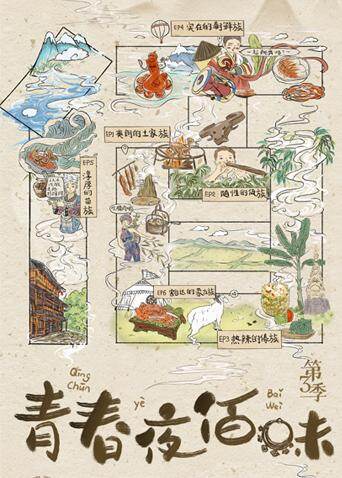 EP4 实在的朝鲜族
EP1 爽朗的土家族
EP5 淳厚的苗族
EP2 随性的佤族
EP6 豁达的蒙古族
EP3 热辣的傣族
第3季
Qīng Chūn yè Bǎi Wèi
青春夜佰味